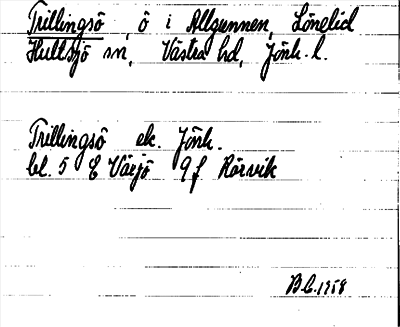 Trillingsö, ö i Allgunnen, Lönelid
Hultsjö sn, Västra hd, Jönk. l.
Trillingsö ek. Jönk.
bl. 5 E Växjö 9 f Rörvik
B C. 1958